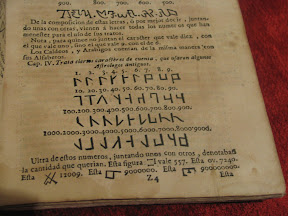 900. 800. 700. 600. 500.
De la composicion de estas letras, ò por mejor decir, juntando
unas con otras, vienen à hacer todos los numeros que has
menester para el uso de sus tratos.
Nota, para quando no junten el caracter que vale diez, con
el que vale uno, sino el que vale 9. con el de 6.
Los Caldeos, y Arabigos cuentan de la misma manera con
sus Alfabetos.
Cap. IV. Trata ciertos caracteres de cuenta, que usaron algunos
Astrologos antiguos.
1. 2. 3. 4. 5. 6. 7. 8. 9.
10. 20. 30. 40. 50. 60. 70. 80. 90.
100. 200. 300. 400. 500. 600. 700. 800. 900.
1000. 2000. 3000. 4000. 5000. 6000. 7000. 8000. 9000.
Ultra de estos numeros, juntando unos con otros, denotaban
la cantidad que querian. Esta figura vale 557. Esta 7240.
Esta 12009. Es 9000000. Esta 9000000.
Z4 Esta